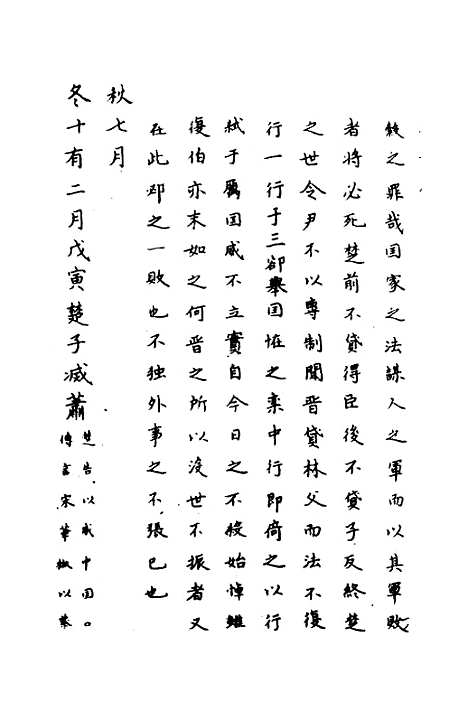 敍之罪哉国家之法謀人之軍而以其軍敗
者將必死楚前不貸得臣後不貸子反終楚
之世令尹不以專制聞晋貸林父而法不復
行一行于三郤舉国恠之欒中行即倚之以行
弑于厲国威不立實自今日之不殺始悼雖
復伯亦末如之何晋之所以没世不振者又
在此邲之一敗也不独外事之不張已也
秋七月
冬十有二月戊寅楚子滅蕭
楚告以威中国
傳言宋華椒以蔡